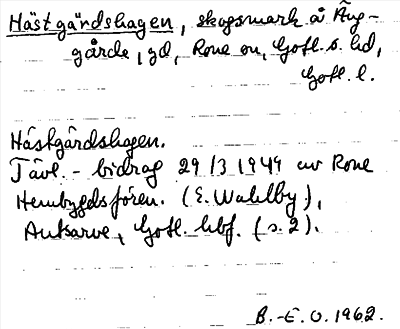 Hästgårdshagen, skogsmark å Äng-
gårde, gd, Rone sn, Gotl. s. hd,
Gotl. l.
Hästgårdshagen.
Tävl.-bidrag 29/3 1944 av Rone
Hembygdsfören. (E. Wahlby),
Autsarve, Gotl. hbf. (s. 2).
B.-E. O. 1962.